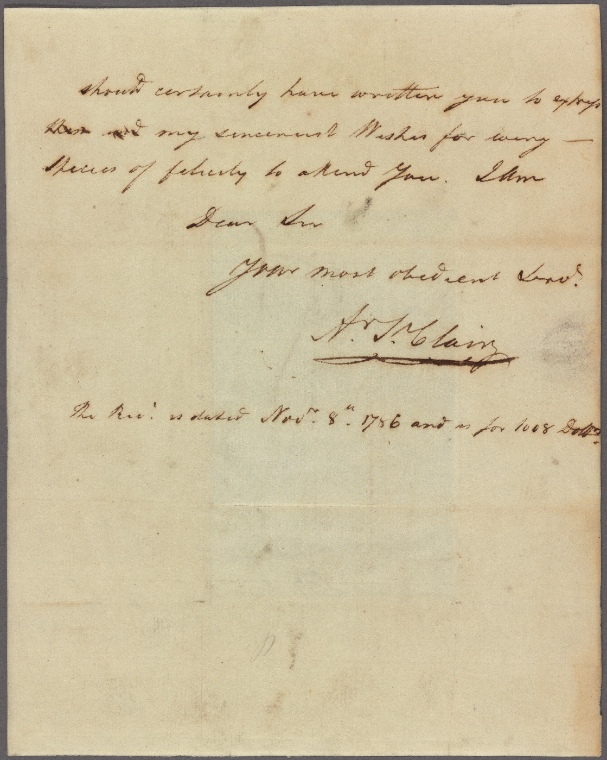 should certainly have written you to express
them and my sincerest Wishes for every —
Species of felicity to attend You. I am
Dear Sir
Your most obedient Servt.
Ar. St. Clair
The Rect. is dated Novr. 8th. 1786 and is for 1008 Dollrs